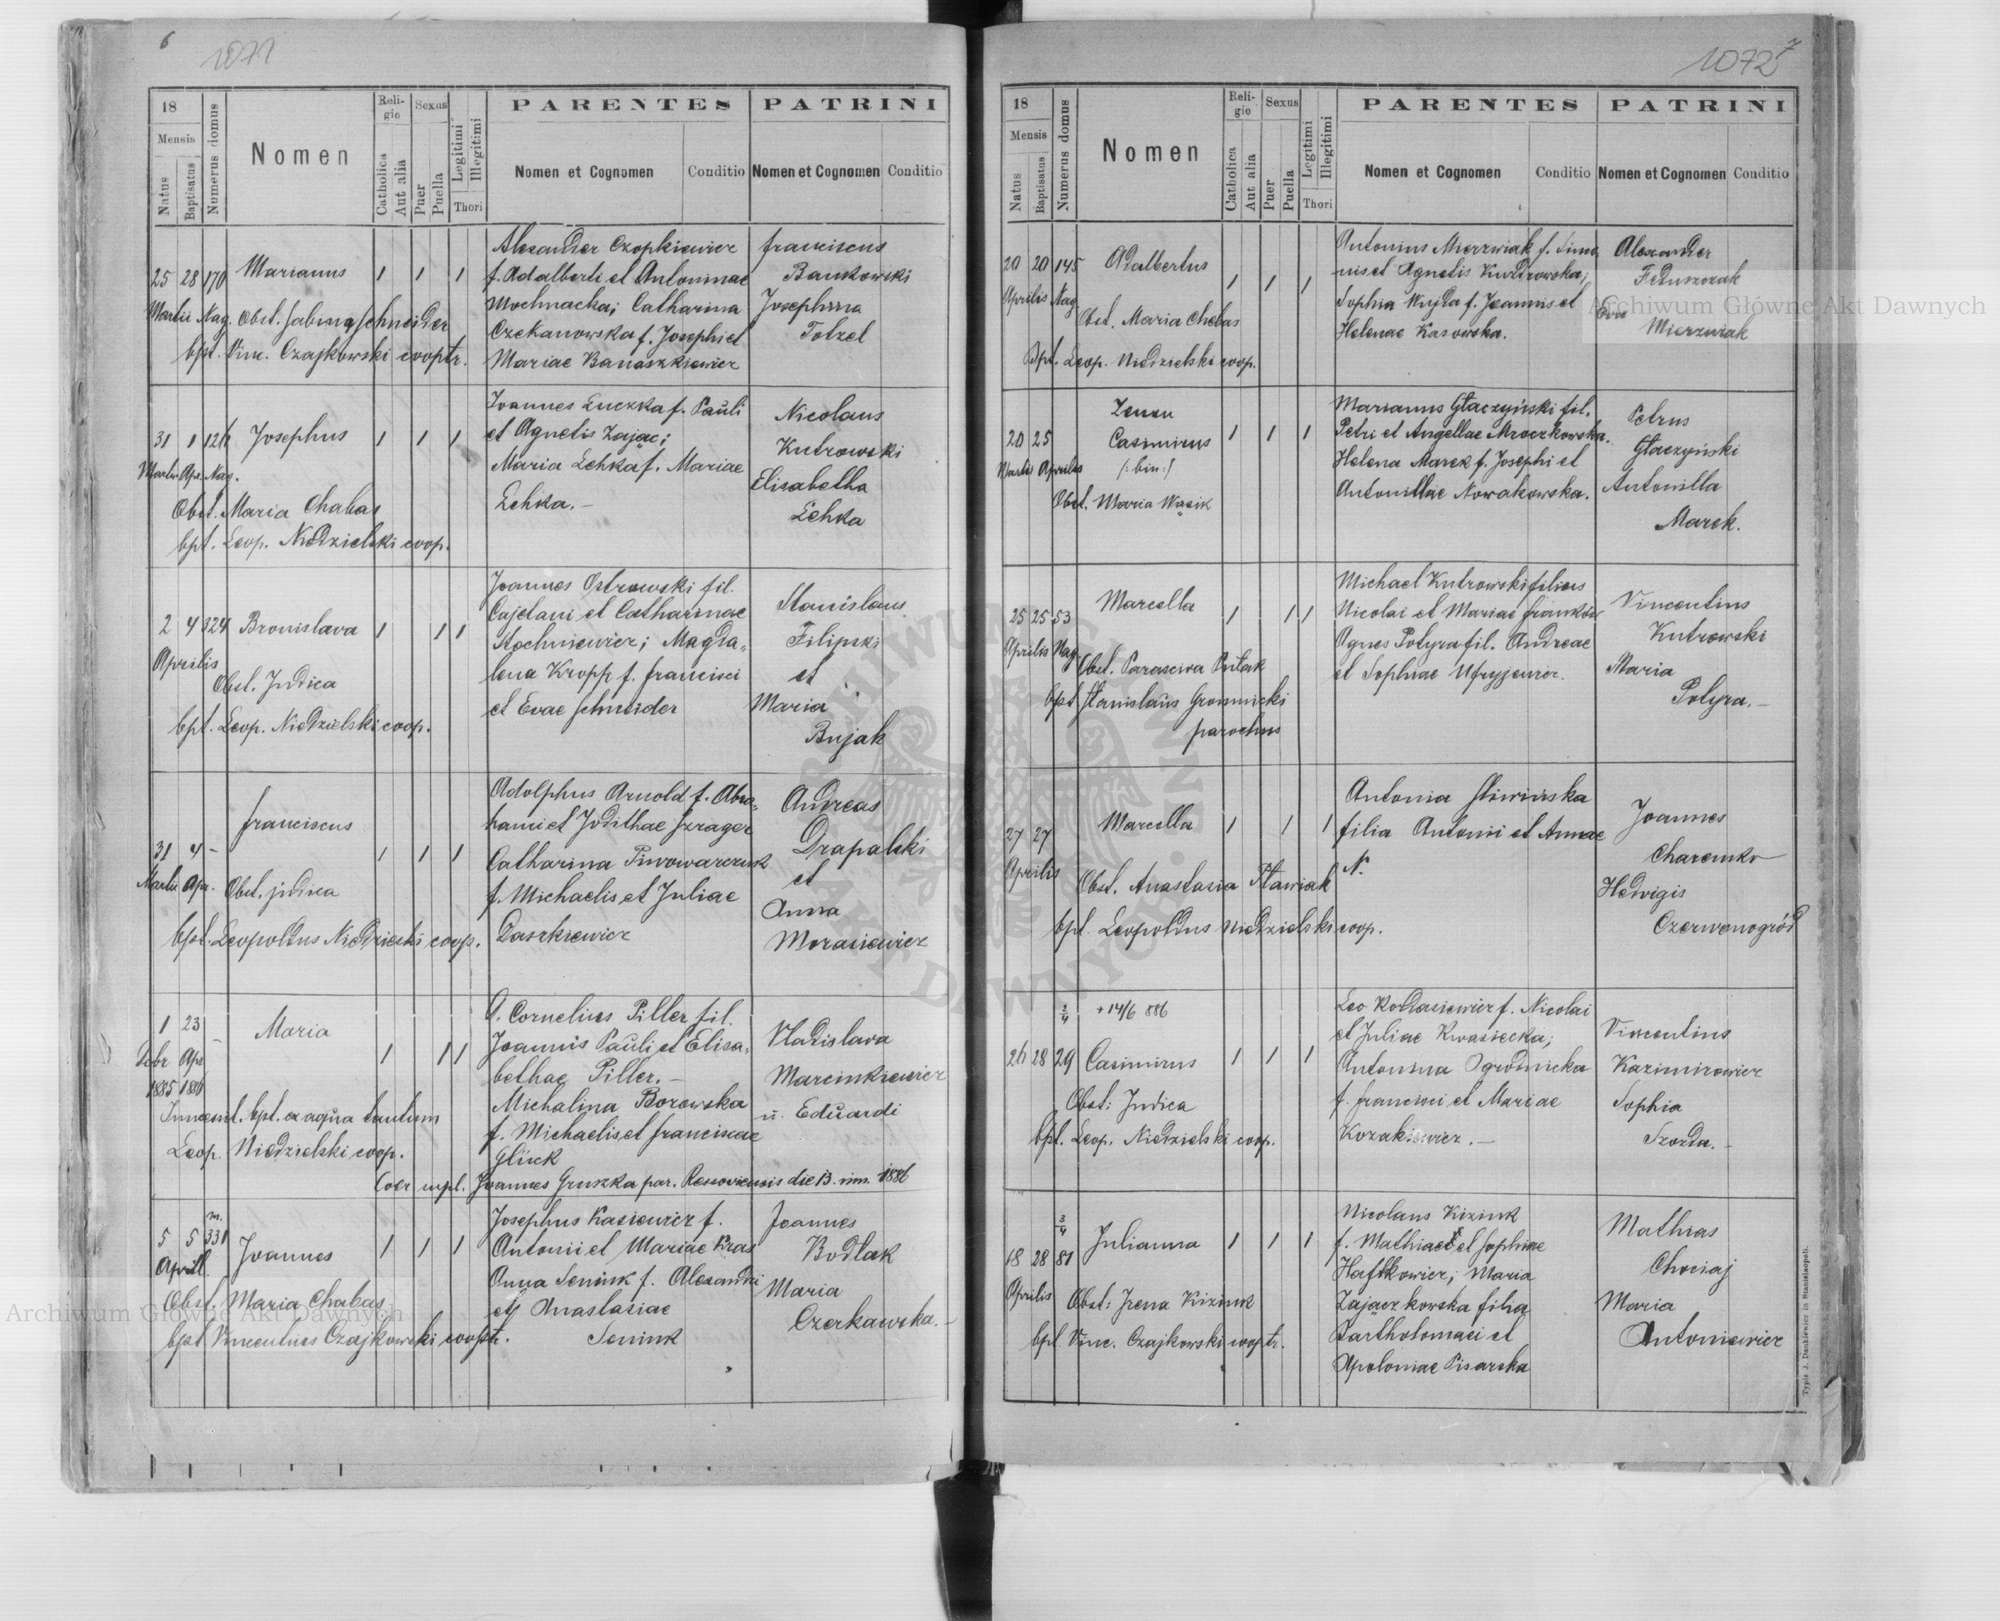 6
1071
18
Mensis
Natus
Baptisatus
Numerus domus
Nomen
Religio
Catholica
Aut alia
Sexus
Puer
Puella
Legitimi
Illegitimi
Thori
PARENTES
Nomen et Cognomen
Conditio
PATRINI
Nomen et Cognomen
Conditio
25 28 170 Marianus 1 1 1
Martii Nag. Obst. Sabina Schneider
bpt. Vinc. Czajkowski cooptr.
Alexander Czopkiewicz
f. Adalberti et Antoninae
Mochnacka; Catharina
Czekanowska f. Josephi et
Mariae Banaszkiewicz
Franciscus
Bankowski
Josephina
Tolzel
31 1 126 Josephus 1 1 1
Martii Apr. Nag.
Obst. Maria Chabas
bpt. Leop. Niedzielski coop.
Joannes Luczka f. Pauli
et Agnetis Zając;
Maria Lehka f. Mariae
Lehka.-
Nicolaus
Kutrowski
Elisabetha
Lehka
2 4 324 Bronislava 1 1 1
Aprilis
Obst. Judica
bpt. Leop. Niedzielski coop.
Joannes Ostrowski fil.
Cajetani et Catharinae
Stochniewicz; Magda-
lena Kropp f. Francisci
et Evae Schneider
Stanislaus
Filipski
et
Maria
Bujak
31 4 - Franciscus 1 1 1
Martii Apr. Obst. judica
bpt. Leopoldus Niedzielski coop.
Adolphus Arnold f. Abra-
hami et Judithae Szrager
Catharina Piwowarczuk
f. Michaelis et Juliae
Daszkiewicz
Andreas
Drapalski
et
Anna
Morasiewicz
1 23 - Maria 1 1 1
Febr Apr
1885 1886
Innocent. bpt. ex aqua tantum
Leop. Niedzielski coop.
Cornelius Piller fil.
Joannis Pauli et Elisa-
bethae Piller.-
Michalina Borowska
f. Michaelis et Franciscae
Glück
Vladislava
Marcinkiewicz
u. Eduardi
Joannes Gruszka par. die 13. 1886
m.
5 5 331 Joannes 1 1 1
April.
Obst. Maria Chabas
bpt. Vincentius Czajkowski cooptr.
Josephus Kasiewicz f.
Antonii et Mariae Kras
Anna Seniuk f. Alexandri
et Anastasiae
Seniuk
Joannes
Bodlak
Maria
Czerkawska.-
7
1072
18
Mensis
Natus
Baptisatus
Numerus domus
Nomen
Religio
Catholica
Aut alia
Sexus
Puer
Puella
Legitimi
Illegitimi
Thori
PARENTES
Nomen et Cognomen
Conditio
PATRINI
Nomen et Cognomen
Conditio
20 20 145 Adalbertus 1 1 1
Aprilis Nag.
Obst. Maria Chabas
Bpt. Leop. Niedzielski coop.
Antonius Mierzwiak f. Simo
nis et Agnetis Kudrowska;
Sophia Wujda f. Joannis et
Helenae Kasowska.
Alexander
Feduszczak
Eva
Mierzwiak
Zenon
20 25 Casimirus 1 1 1
Martii Aprilis (:bin:)
Obst. Maria Wąsik
Marianus Głaczyński fil.
Petri et Angellae Mroczkowska.
Helena Marek f. Josephi et
Antonillae Nowakowska.
Petrus
Głaczyński
Antonilla
Marek.
25 25 53 Marcella 1 1 1
Aprilis Nag.
Obst. Parasciva Pułak
bpt Stanislaus Gromnicki
parochus
Michael Kutrowski filius
Nicolai et Mariae Franków
Agnes Potyra fil. Andreae
et Sophiae Ufryjewicz.
Vincentius
Kutrowski
Maria
Potyra.-
27 27 Marcella 1 1 1
Aprilis
Obst. Anastasia Pławiak
bpt. Leopoldus Niedzielski coop.
Antonia Śliwińska
filia Antonii et Annae
N.
Joannes
Charemko
Hedvigis
Czerwonogród
2/4 +14/6 886
26 28 29 Casimirus 1 1 1
Obst: Judica
bpt. Leop. Niedzielski coop.
Leo Kodasiewicz f. Nicolai
et Juliae Kwasiecka;
Antonina Ogrodnicka
f. Francisci et Mariae
Kozakiewicz.-
Vincentius
Kazimirowicz
Sophia
Szozda.-
3/4
18 28 81 Julianna 1 1 1
Aprilis Obst: Irena Kiziuk
bpt Vinc. Czajkowski cooptr.
Nicolaus Kiziuk
f. Mathiae et Sophiae
Haftkowicz; Maria
Zajączkowska filia
Bartholomaei et
Apoloniae Pisarska
Mathias
Chociaj
Maria
Antoniewicz
Typis J. Dankiewicz in Stanislaopoli.
Archiwum Główne Akt Dawnych
Archiwum Główne Akt Dawnych